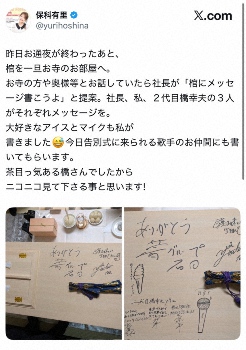 保科有里
@yurihoshina
X.com
昨日お通夜が終わったあと、
棺を一旦お寺のお部屋へ。
お寺の方や奥様等とお話していたら社長が「棺にメッセ
ージ書こうよ」と提案。社長、私、２代目橋幸夫の３人
がそれぞれメッセージを。
大好きなアイスとマイクも私が
書きました😅今日告別式に来られる歌手のお仲間にも書
いてもらいます。
茶目っ気ある橋さんでしたから
ニコニコ見て下さる事と思います!
ありがとう
ありがとう